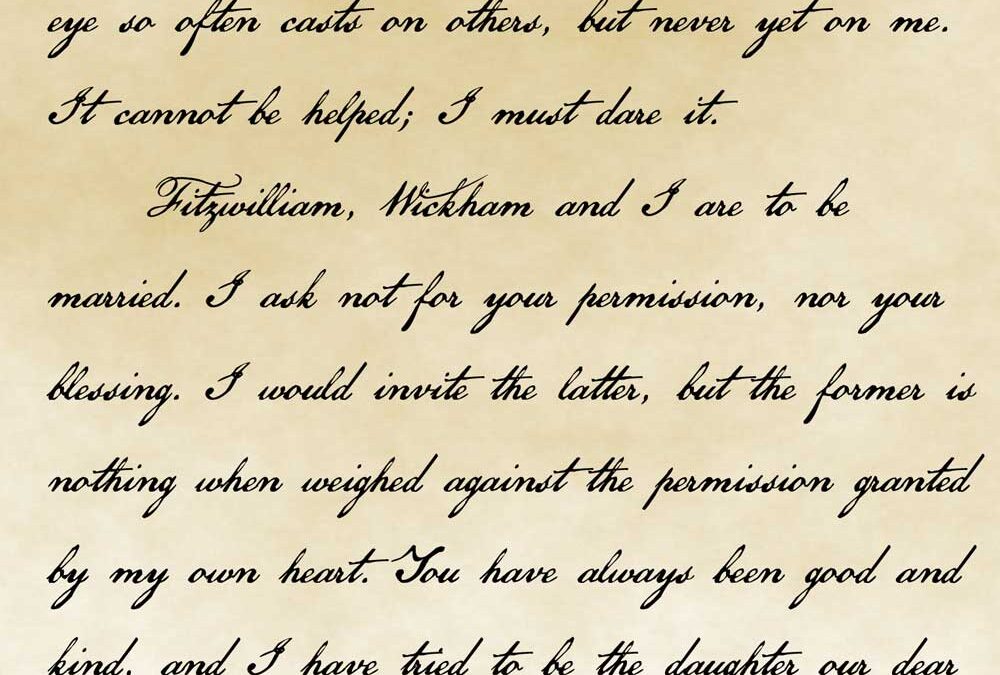 eye so often casts on others, but never yet on me.
It cannot be helped; I must dare it.
Fitzwilliam, Wickham and I are to be
married. I ask not for your permission, nor your
blessing. I would invite the latter, but the former is
nothing when weighed against the permission granted
by my own heart. You have always been good and
kind, and I have tried to be the daughter our dear